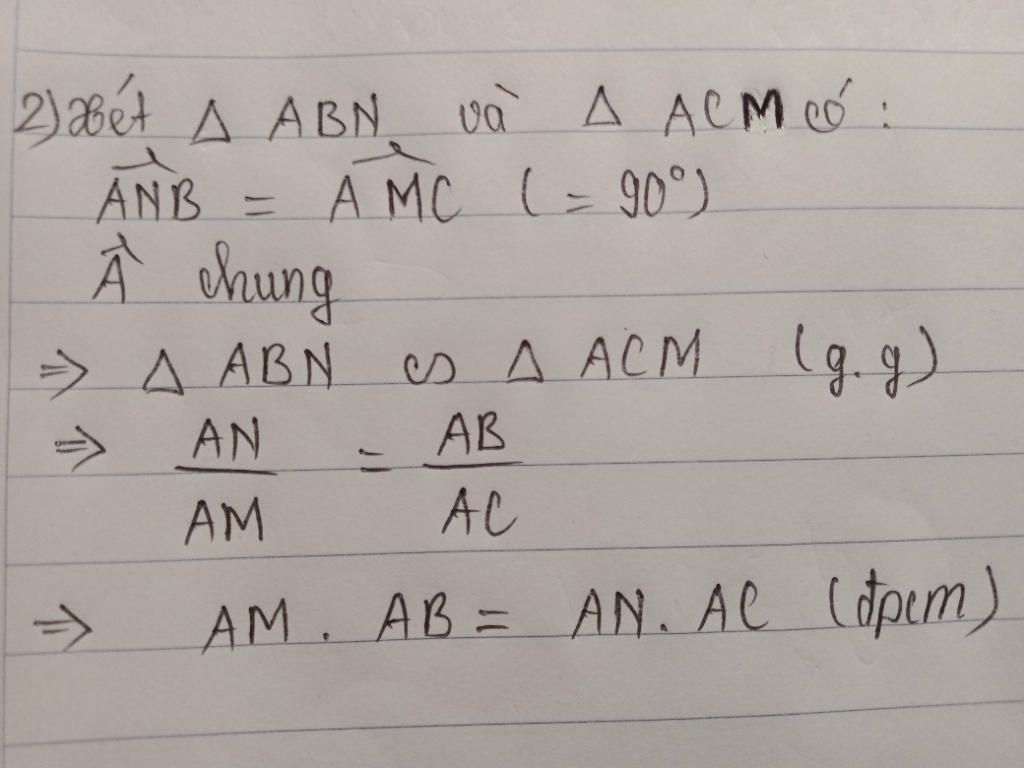 2) Xét Δ ABN và Δ ACM có:
$\widehat{ANB}$ = $\widehat{AMC}$ (= 90°)
$\widehat{A}$ chung
⇒ Δ ABN ∽ Δ ACM (g.g)
⇒ $\frac{AN}{AM}$ = $\frac{AB}{AC}$
⇒ AM . AB = AN . AC (đpcm)